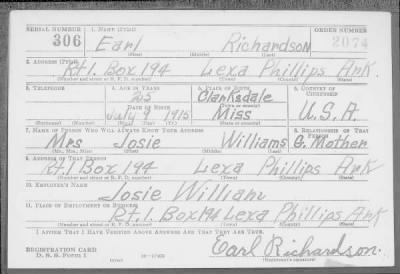 SERIAL NUMBER 1. NAME (Print) ORDER NUMBER
306 Earl Richardson 2074
(First) (Middle) (Last)
2. ADDRESS (Print)
Rt.1. Box 194 Lexa Phillips Ark.
(Number and street or R. F. D. number) (Town) (County) (State)
3. TELEPHONE 4. AGE IN YEARS 5. PLACE OF BIRTH 6. COUNTRY OF CITIZENSHIP
25 Clarksdale
DATE OF BIRTH (Town or county)
July 9 1915 Miss U.S.A.
(Mo.) (Day) (Yr.) (State or country)
7. NAME OF PERSON WHO WILL ALWAYS KNOW YOUR ADDRESS 8. RELATIONSHIP OF THAT PERSON
Mrs Josie Williams G. Mother
(Mr., Mrs., Miss) (First) (Middle) (Last)
9. ADDRESS OF THAT PERSON
Rt.1. Box 194 Lexa Phillips Ark
(Number and street or R. F. D. number) (Town) (County) (State)
10. EMPLOYER'S NAME
Josie William
11. PLACE OF EMPLOYMENT OR BUSINESS
Rt.1. Box 194 Lexa Phillips Ark
(Number and street or R. F. D. number) (Town) (County) (State)
I AFFIRM THAT I HAVE VERIFIED ABOVE ANSWERS AND THAT THEY ARE TRUE.
REGISTRATION CARD Earl Richardson.
D. S. S. Form 1 (Registrant's signature)
(over)